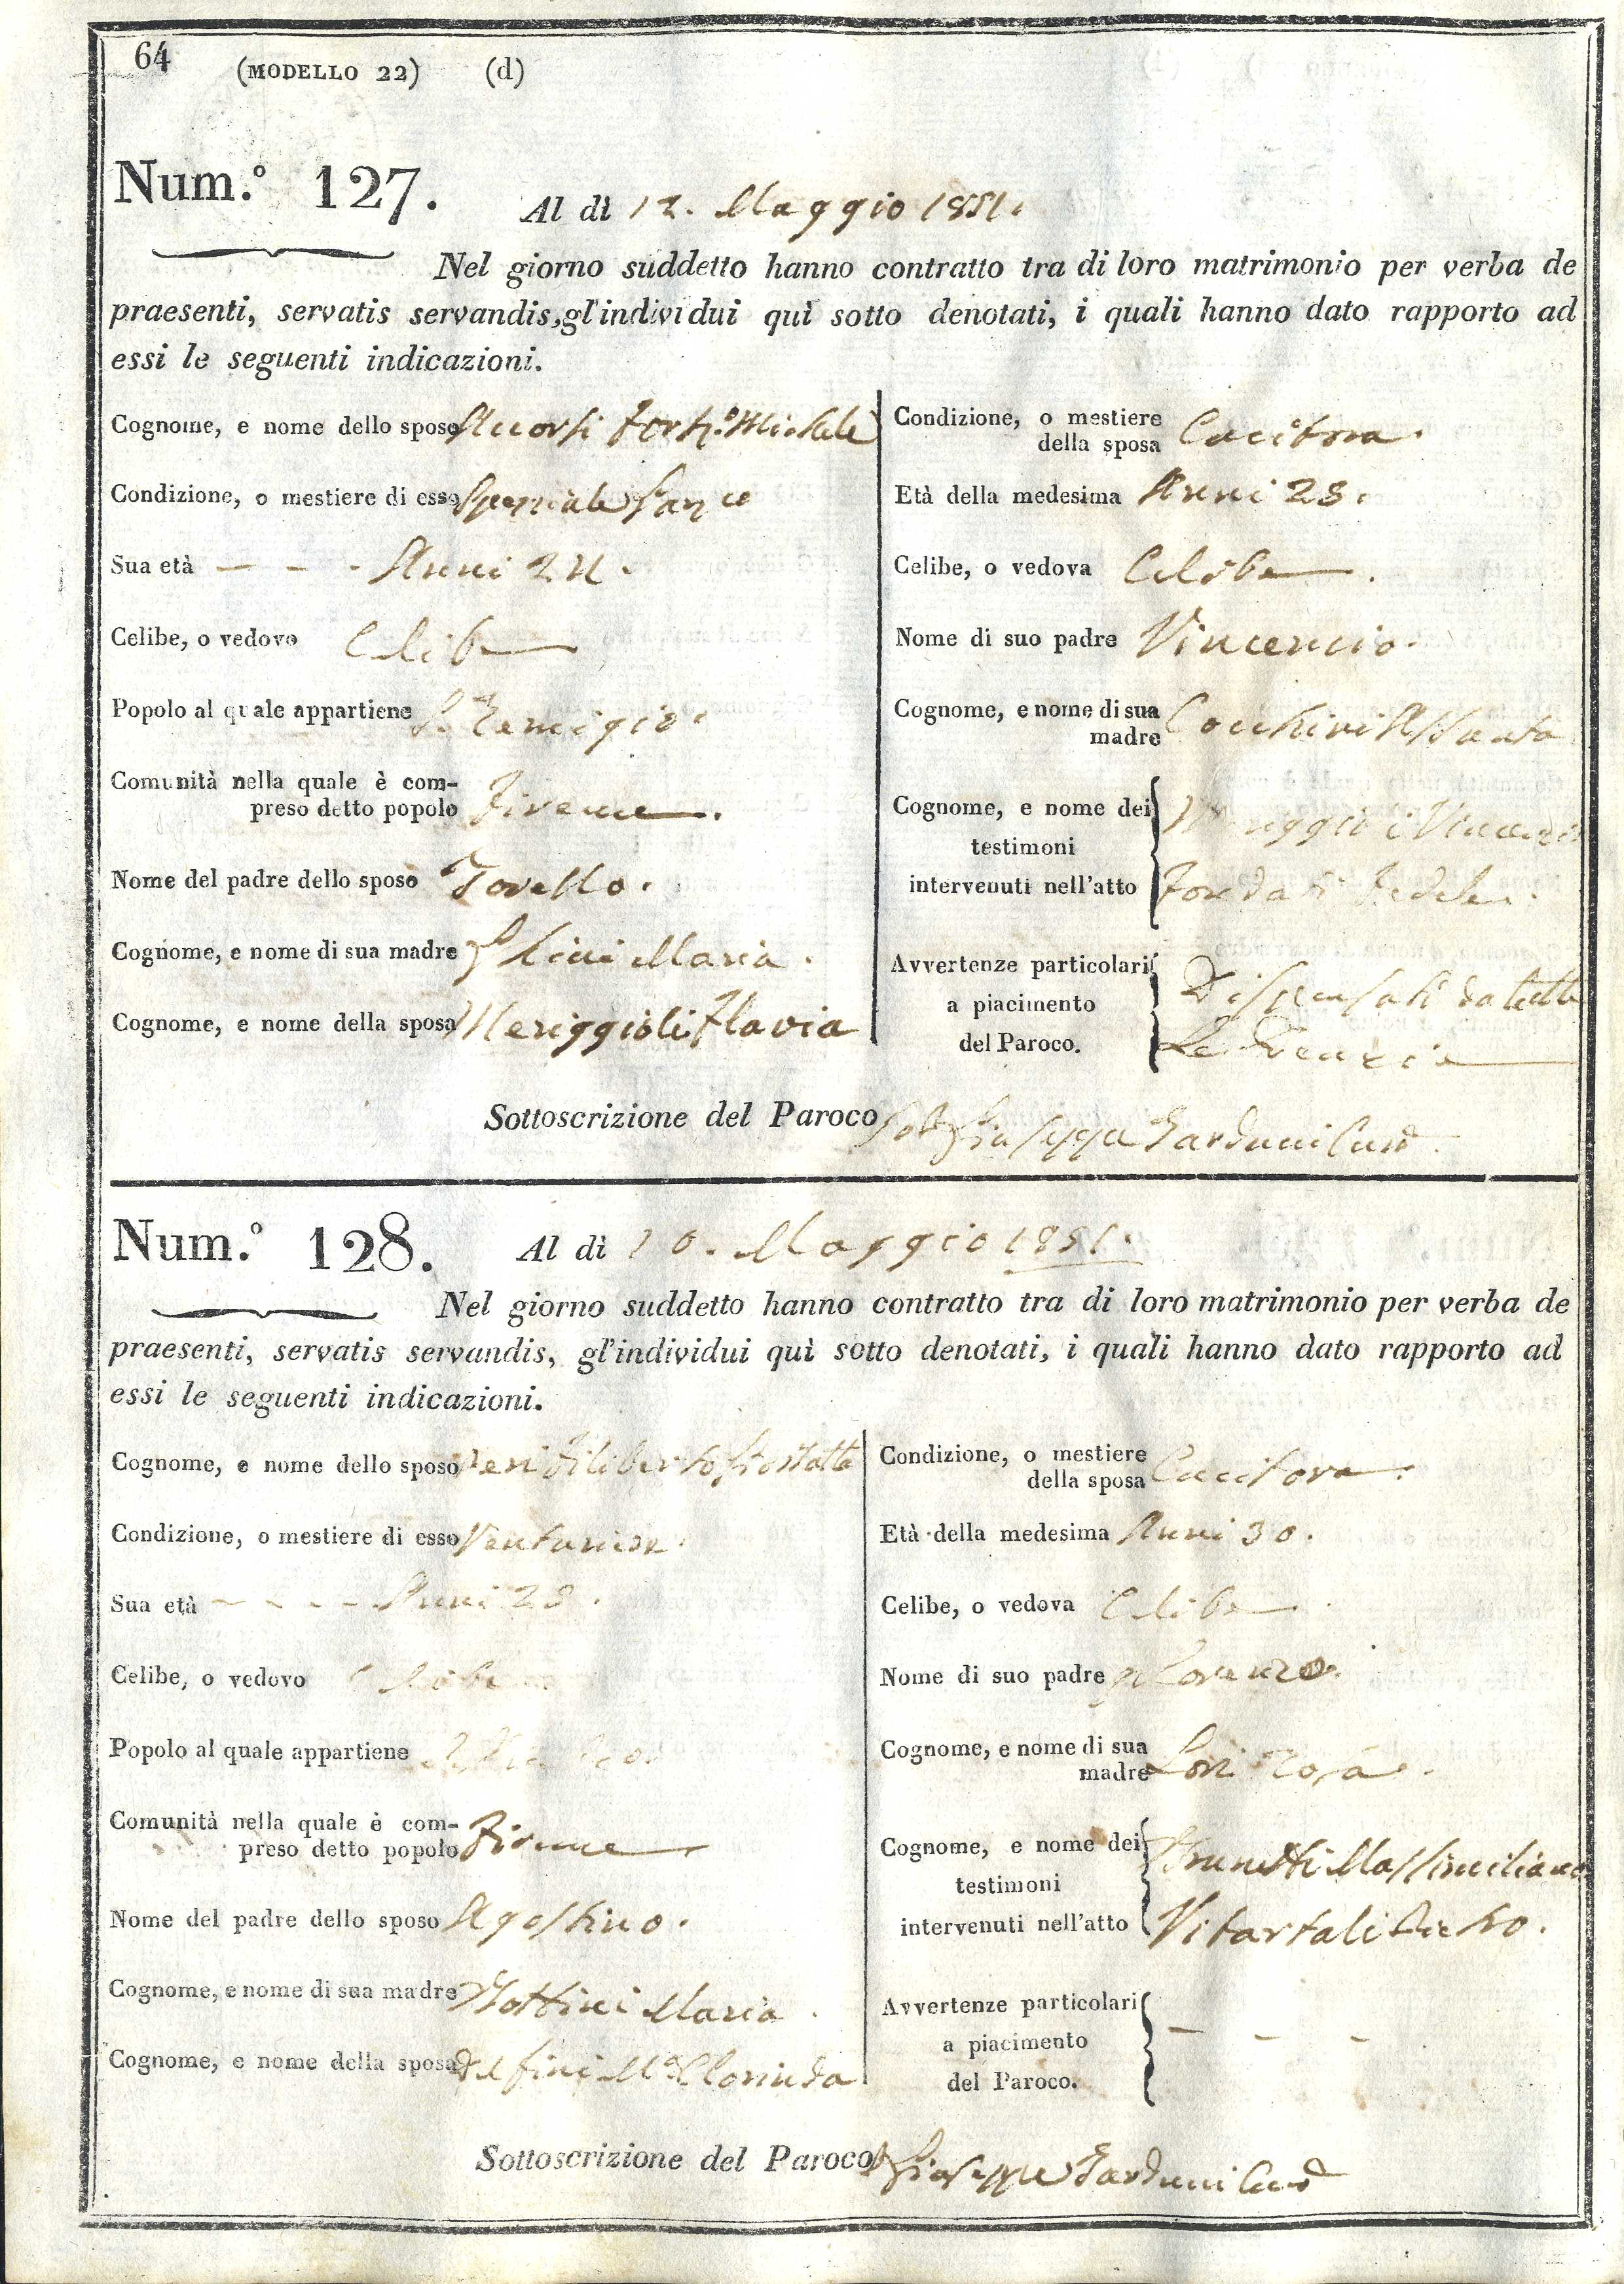 64 (MODELLO 22) (d)
Num.° 127. Al dì 12. Maggio 1851.
Nel giorno suddetto hanno contratto tra di loro matrimonio per verba de
praesenti, servatis servandis, gl'individui quì sotto denotati, i quali hanno dato rapporto ad
essi le seguenti indicazioni.
Cognome, e nome dello sposo Michele
Condizione, o mestiere di esso Speziale
Sua età - - - Anni 24.
Celibe, o vedovo Celibe
Popolo al quale appartiene S. Remigio.
Comunità nella quale è com-
preso detto popolo Firenze.
Nome del padre dello sposo Torello.
Cognome, e nome di sua madre Maria.
Cognome, e nome della sposa Meriggioli Flavia
Condizione, o mestiere
della sposa Cucitora.
Età della medesima Anni 28.
Celibe, o vedova Celibe.
Nome di suo padre Vincenzio.
Cognome, e nome di sua
madre Assunta
Cognome, e nome dei
testimoni
intervenuti nell'atto Fedele.
Avvertenze particolari Dispensati da tutte
a piacimento
del Paroco. Le Denunzie
Sottoscrizione del Paroco Giuseppe Carducci Curo
Num.° 128. Al dì 10. Maggio 1851.
Nel giorno suddetto hanno contratto tra di loro matrimonio per verba de
praesenti, servatis servandis, gl'individui quì sotto denotati, i quali hanno dato rapporto ad
essi le seguenti indicazioni.
Cognome, e nome dello sposo Filiberto
Condizione, o mestiere di esso
Sua età - - - - Anni 28.
Celibe, o vedovo Celibe
Popolo al quale appartiene
Comunità nella quale è com-
preso detto popolo Firenze
Nome del padre dello sposo Agostino.
Cognome, e nome di sua madre Maria.
Cognome, e nome della sposa Delfini Mª Clorinda
Condizione, o mestiere
della sposa Cucitora.
Età della medesima Anni 30.
Celibe, o vedova Celibe.
Nome di suo padre Lorenzo.
Cognome, e nome di sua
madre Rosa.
Cognome, e nome dei Brunetti Massimiliano
testimoni
intervenuti nell'atto Vitartali Pietro.
Avvertenze particolari
a piacimento - - -
del Paroco.
Sottoscrizione del Paroco Giuseppe Carducci Curo